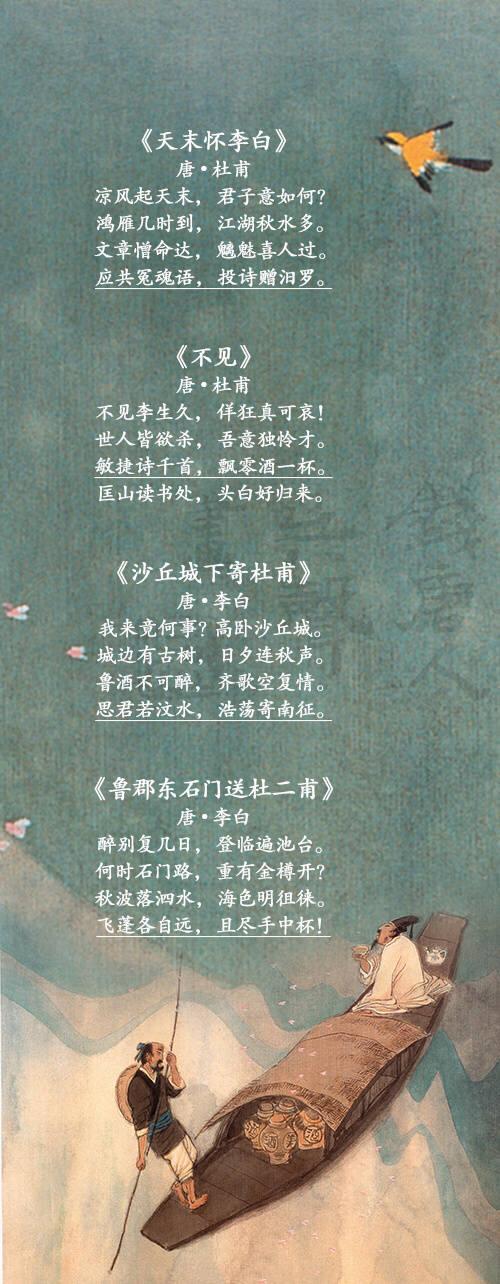 《天末怀李白》
唐•杜甫
凉风起天末，君子意如何？
鸿雁几时到，江湖秋水多。
文章憎命达，魑魅喜人过。
应共冤魂语，投诗赠汨罗。
《不见》
唐•杜甫
不见李生久，佯狂真可哀！
世人皆欲杀，吾意独怜才。
敏捷诗千首，飘零酒一杯。
匡山读书处，头白好归来。
《沙丘城下寄杜甫》
唐•李白
我来竟何事？高卧沙丘城。
城边有古树，日夕连秋声。
鲁酒不可醉，齐歌空复情。
思君若汶水，浩荡寄南征。
《鲁郡东石门送杜二甫》
唐•李白
醉别复几日，登临遍池台。
何时石门路，重有金樽开？
秋波落泗水，海色明徂徕。
飞蓬各自远，且尽手中杯！
酒
酒